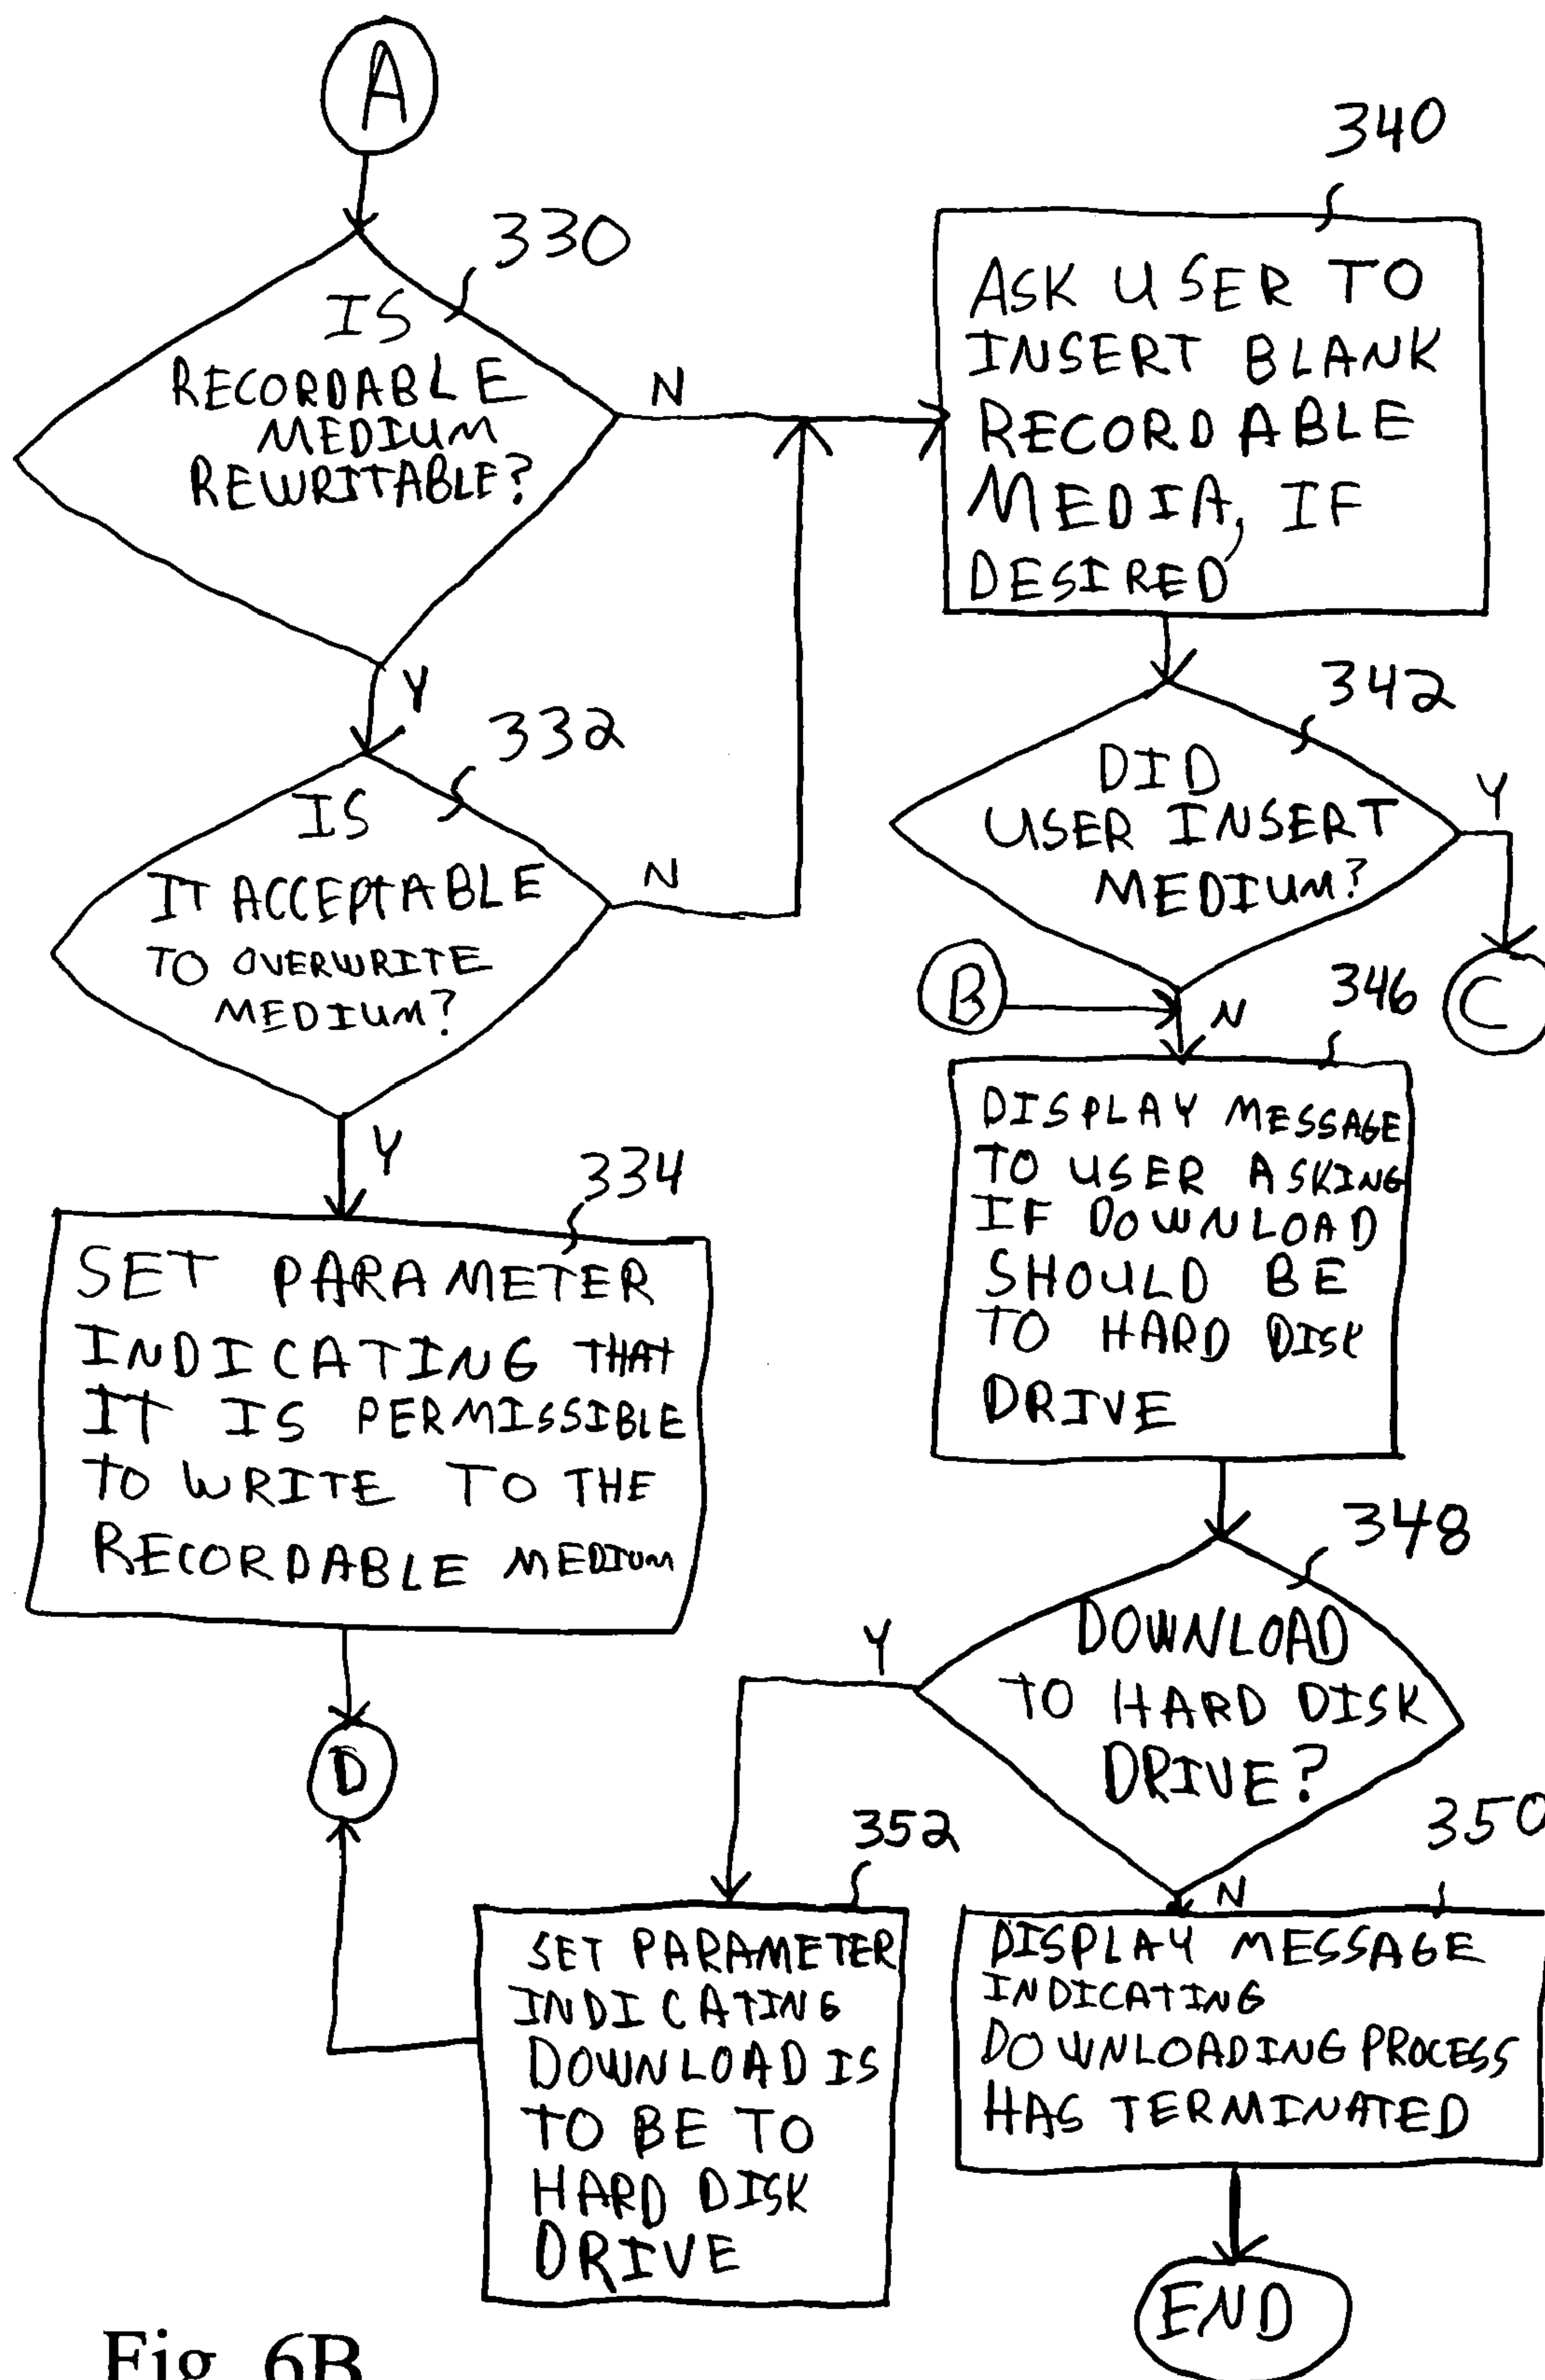 A
330
IS
RECORDABLE
MEDIUM
REWRITABLE?
N
Y
332
IS
IT ACCEPTABLE
TO OVERWRITE
MEDIUM?
N
Y
334
SET PARAMETER
INDICATING THAT
IT IS PERMISSIBLE
TO WRITE TO THE
RECORDABLE MEDIUM
D
340
ASK USER TO
INSERT BLANK
RECORDABLE
MEDIA, IF
DESIRED
342
DID
USER INSERT
MEDIUM?
Y
C
B
N
346
DISPLAY MESSAGE
TO USER ASKING
IF DOWNLOAD
SHOULD BE
TO HARD DISK
DRIVE
348
DOWNLOAD
TO HARD DISK
DRIVE?
Y
352
SET PARAMETER
INDICATING
DOWNLOAD IS
TO BE TO
HARD DISK
DRIVE
N
350
DISPLAY MESSAGE
INDICATING
DOWNLOADING PROCESS
HAS TERMINATED
END
Fig. 6B